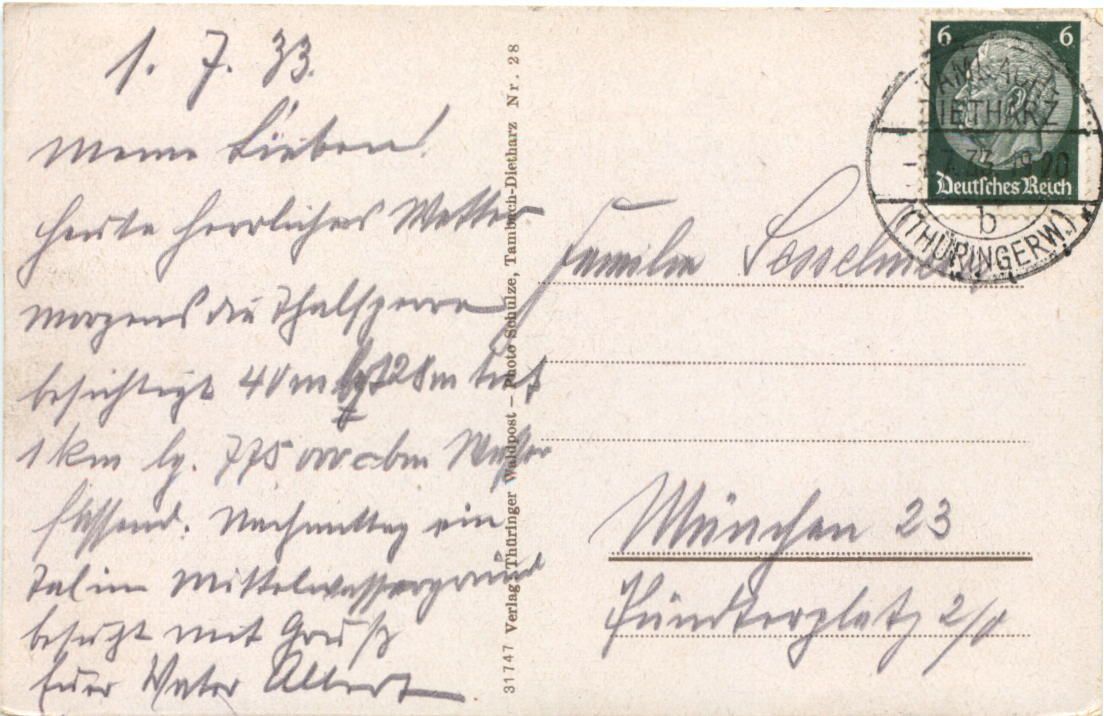 1. 7. 33.
Meine Lieben!
Heute herrliches Wetter
Morgens die Thalsperre
besichtigt 40 m 28 m tief
1 km lg. 775 000 cbm Wasser
fassend. Nachmittag ein
Tal im Mittelwassergrund
besucht mit Gruß
Euer Vater Albert
31747 Verlag: Thüringer Waldpost – Photo Schulze, Tambach-Dietharz Nr. 28
6 6
Deutsches Reich
TAMBACH-
DIETHARZ
-1.7.33.19-20
b
(THÜRINGERW.)
Familie
München 23
Fündterplatz 2/0